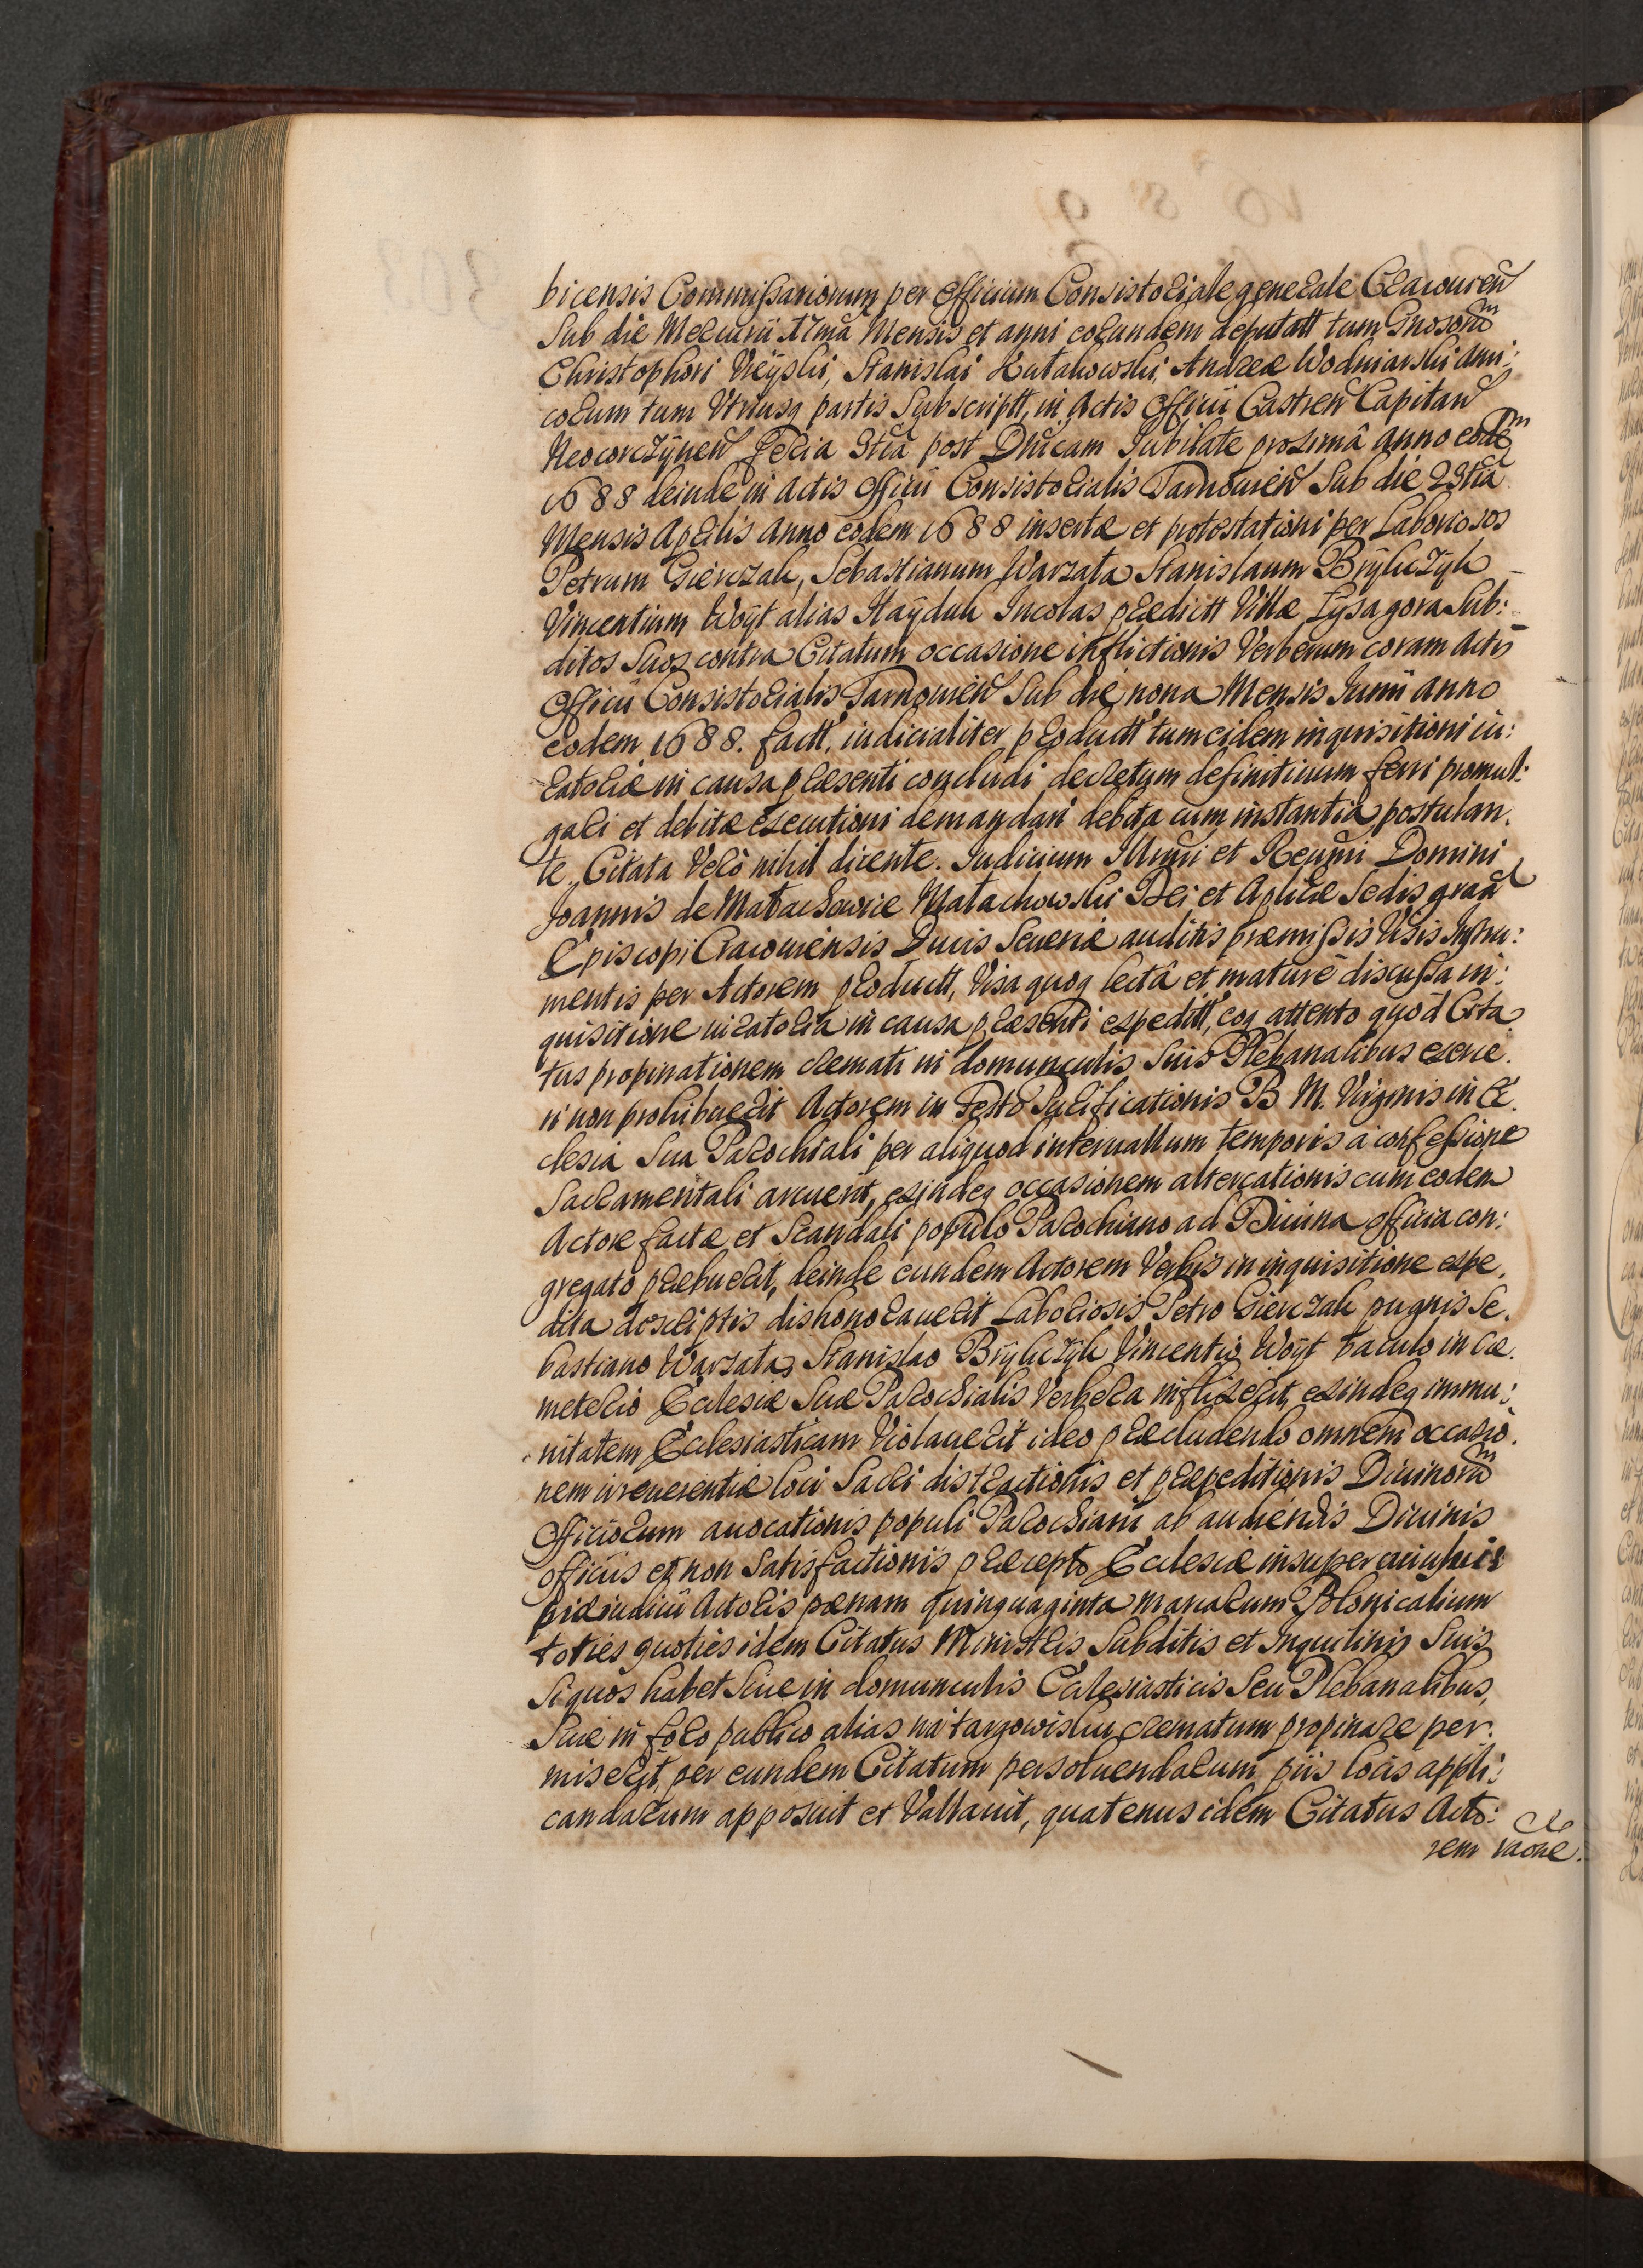 bicensis Commissariorum per Officium Consistoriale generale Cracovien
Sub die Mercurii Mensis et anni eorundem deputatt tum Gnosorum
Christophori Reÿski, Stanislai Andreæ Wodniarski Ami:
corum tum Utriusq partis Subscriptt, in Actis Officii Castren Capitan
Neocorczÿnen Feria 3tia post Dnicam Jubilate proximâ anno eodem
1688 deinde in Actis Officii Consistorialis Tarnovien Sub die 23tia
Mensis Aprilis Anno eodem 1688 insertæ et protestationi per Laboriosos
Petrum Gierczak, Sebastianum Warzata Stanislaum Brÿkczÿk
Vincentium Woÿt alias Haÿduk Incolas prædictt Villæ Łysagora Sub:
ditos Suos contra Citatum occasione inflictionis Verberum coram Actis
Officii Consistorialis Tarnovien Sub die nona Mensis Junii Anno
eodem 1688. factt, iudicialiter productt tum eidem inquisitioni iu:
ratoriæ in causa præsenti concludi decretum definitiuum ferri promul:
gari et debitæ executioni demandari debita cum instantia postulan.
te Citata Verò nihil dicente. Iudicium Illmi et Rendmi Domini
Joannis de Małachowice Małachowski Dei et Aplicæ Sedis gratia
Episcopi Cracouiensis Ducis Seueriæ auditis præmissis Visis Instru:
mentis per Actorem productt, Visa quoq lectâ et maturè discussa in:
quisitione iuratoria in causa præsenti expeditt, eoq attento quòd Cita
tus propinationem cremati in domunculis Suis Plebanalibus exerce.
ri non prohibuerit Actorem in Festo Purificationis B M. Virginis in Ec.
clesia Sua Parochiali per aliquod interuallum temporis à confessione
Sacramentali arcuerit, exindeq occasionem altercationis cum eodem
Actore factæ et Scandali populo Parochiano ad Diuina officia con:
gregato præbuerit, deinde eundem Actorem Verbis in inquisitione expe.
dita descriptis dishonorauerit Laboriosis Petro Gierczak pugnis Se.
bastiano Warzata, Stanislao Brÿkczÿk Vincentio Woÿt baculo in Cæ.
meterio Ecclesiæ Suæ Parochialis Verbera inflixerit, exindeq immu:
nitatem Ecclesiasticam Violauerit ideo præcludendo omnem occasio.
nem irreuerentiæ loci Sacri distractionis et præpeditionis Diuinorum
Officiorum auocationis populi Parochiani ab audiendis Diuinis
officiis et non Satisfactionis præcepto Ecclesiæ insuper cuiusuis
præiudicii Actoris pœnam quinquaginta marcarum Polonicalium
toties quoties idem Citatus Ministris Subditis et Inquilinis Suis
Si quos habet Siue in domunculis Ecclesiasticis Seu Plebanalibus,
Siue in foro publico alias na targowisku crematum propinare per.
miserit, per eundem Citatum persoluendarum piis locis appli:
candarum apposuit et Vallauit, quatenus idem Citatus Acto:
rem